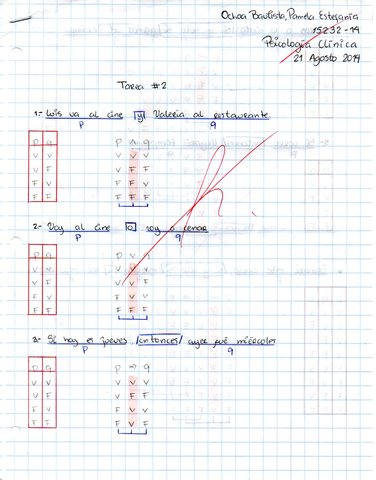 Ochoa Bautista, Pamela Estefania
15232-14
Psicología Clínica
21 Agosto 2014
Tarea #2
1.- Luis va al cine y Valeria al restaurante
p q
p q p ∧ q
V V V V V
V F V F F
F V F F V
F F F F F
2.- Voy al cine o voy a cenar
p q
p q p v q
V V V V V
V F V V F
F V F V V
F F F F F
3.- Si hoy es jueves /entonces/ ayer fué miércoles
p q
p q p ⇒ q
V V V V V
V F V F F
F V F V V
F F F V F